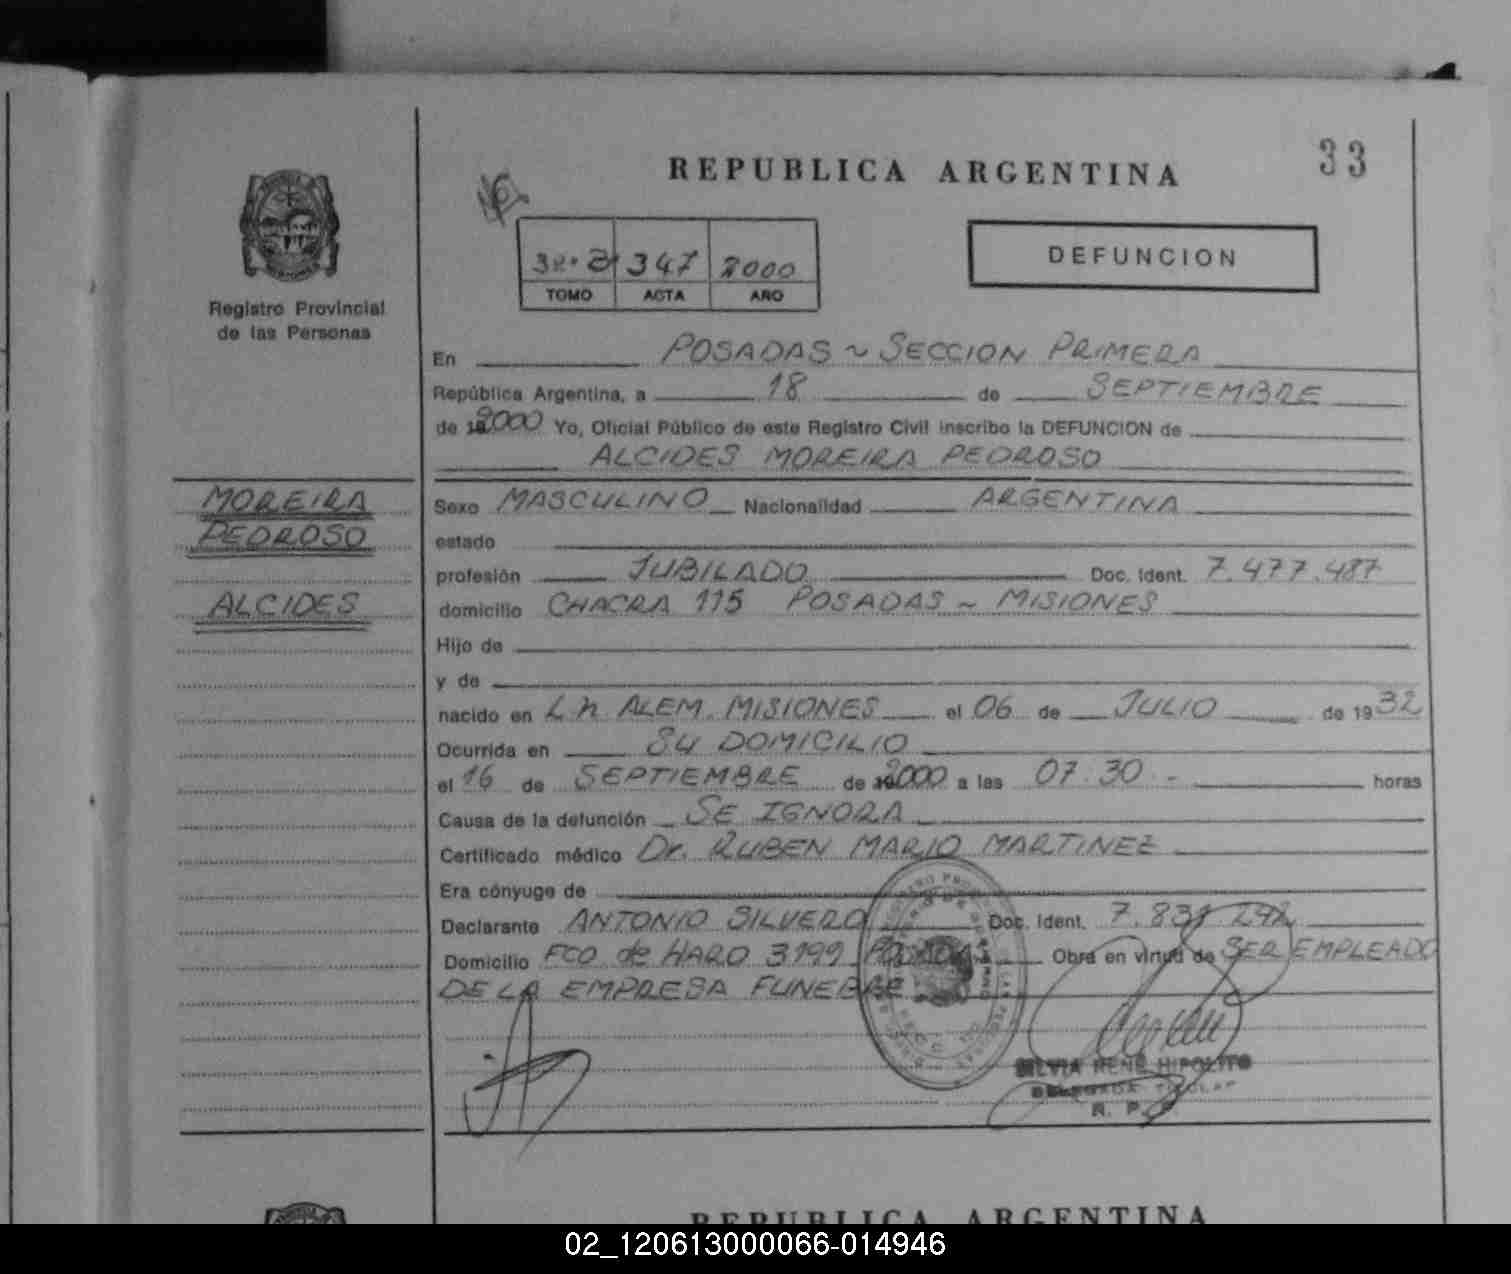 33
REPUBLICA ARGENTINA
DEFUNCION
347 2000
TOMO ACTA AÑO
Registro Provincial
de las Personas
En POSADAS ~ SECCION PRIMERA
República Argentina, a 18 de SEPTIEMBRE
de 2000 Yo, Oficial Público de este Registro Civil inscribo la DEFUNCION de
ALCIDES MOREIRA PEDROSO
MOREIRA
PEDROSO
ALCIDES
Sexo MASCULINO Nacionalidad ARGENTINA
estado
profesión JUBILADO Doc. Ident. 7.477.487
domicilio CHACRA 115 POSADAS ~ MISIONES
Hijo de
y de
nacido en L.N. ALEM. MISIONES el 06 de JULIO de 1932
Ocurrida en SU DOMICILIO
el 16 de SEPTIEMBRE de 2000 a las 07.30.- horas
Causa de la defunción SE IGNORA
Certificado médico Dr. RUBEN MARIO MARTINEZ
Era cónyuge de
Declarante ANTONIO SILVERO Doc. Ident.
Domicilio FCO de HARO 3199 POSADAS Obra en virtud de SER EMPLEADO
DE LA EMPRESA FUNEBRE
SILVIA RENE HIPOLITO
DELEGADA TITULAR
R. P. P.
REPUBLICA ARGENTINA
02_120613000066-014946